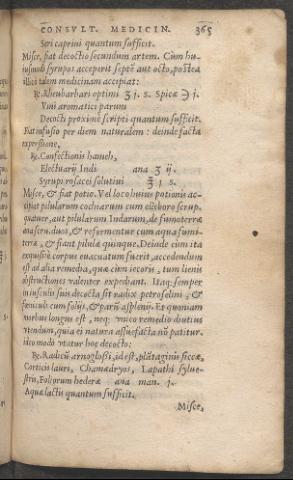 CONSVLT. MEDICIN. 365
Seri caprini quantum sufficit.
Misce, fiat decoctio secundum artem. Cùm hu-
iusmodi syrupos acceperit septē aut octo, postea
illicò talem medicinam accipiat:
℞. Rheubarbari optimi ʒ j. s. Spicæ ℈ j.
Vini aromatici parum
Decocti proximè scripti quantum sufficit.
Fiat infusio per diem naturalem: deinde facta
expressione,
℞. Confectionis hamech,
Electuarij Indi ana ʒ ij.
Syrupi rosacei solutini ℥ j s.
Misce, & fiat potio. Vel loco huius potionis ac-
cipiat pilularum cochearum cum elleboro scrup.
quatuor, aut pilularum Indarum, de fumoterræ
ana scru. duos, & reformentur cum aqua fumi-
terræ, & fiant pilulæ quinque. Deinde cùm ita
exquisitè corpus euacuatum fuerit, accedendum
est ad alia remedia, quæ cùm iecoris, tum lienis
obstructiones valenter expediant. Itaq; semper
in iusculis suis decocta sit radix petroselini, &
fœniculi cum folijs, & parū asplenij. Et quoniam
morbus longus est, neq; vnico remedio diutius
vtendum, quia ei natura assuefacta nō patitur,
ideo modò vtatur hoc decocto:
℞. Radicū arnoglossi, id est, plātaginis siccæ,
Corticis lauri, Chamædryos, Lapathi sylue-
stris, Foliorum hederæ ana man. j.
Aqua lactis quantum sufficit.
Misce,